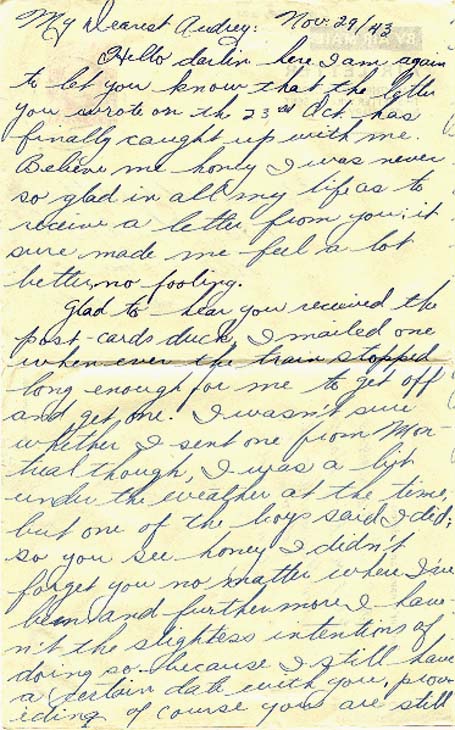 My Dearest Audrey: Nov. 29/43
Hello darlin here I am again
to let you know that the letter
you wrote on the 23rd Oct. has
finally caught up with me.
Believe me honey I was never
so glad in all my life as to
receive a letter from you; it
sure made me feel a lot
better, no fooling.
Glad to hear you received the
post-cards duck, I mailed one
when ever the train stopped
long enough for me to get off
and get one. I wasn't sure
whether I sent one from Mon-
treal though, I was a bit
under the weather at the time,
but one of the boys said I did;
so you see honey I didn't
forget you no matter where I've
been and furthermore I have-
n't the slightess intentions of
doing so because I still have
a certain date with you, prov-
iding of course yours are still